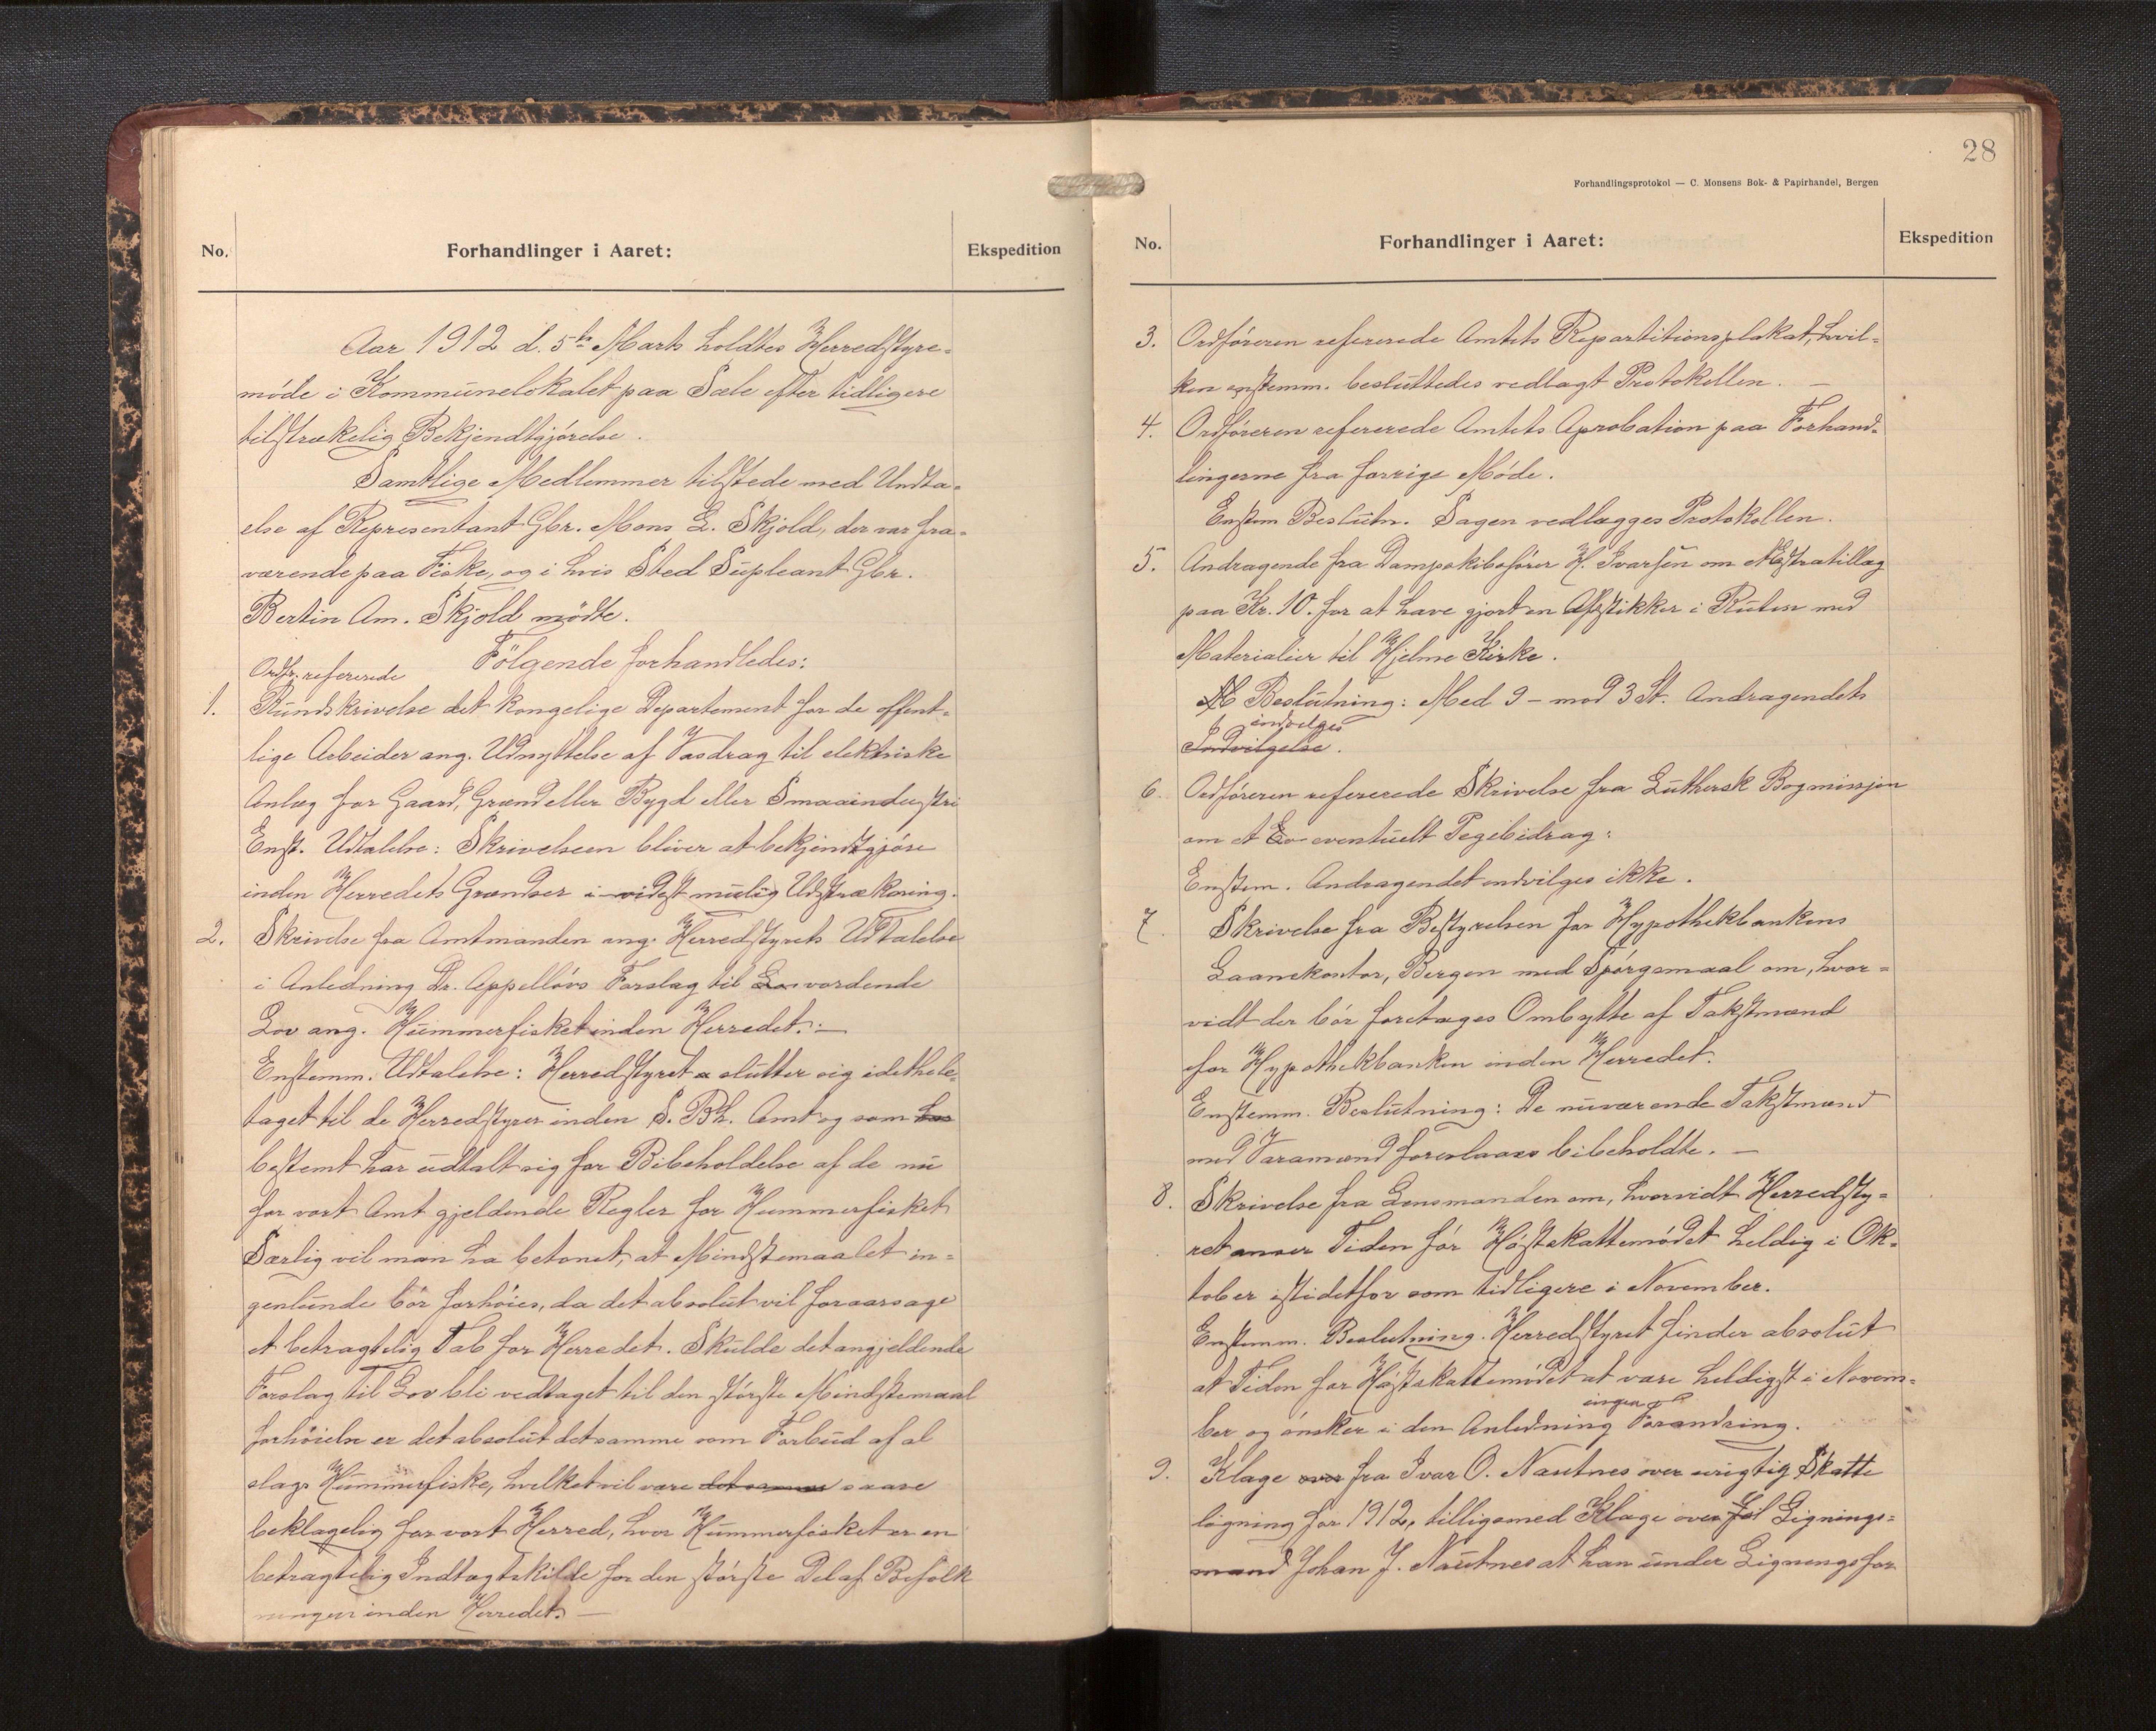 No.
Forhandlinger i Aaret:
Ekspedition
Aar 1912 d. 5te Marts holdtes Herredstyre-
møde i Kommunelokalet paa Sæle efter tidligere
tilstrækelig Bekjendtgjørelse.
Samtlige Medlemmer tilstede med Undta-
else af Representant Gbr. Mons L. Skjold, der var fra-
værende paa Fiske, og i hvis Sted Supleant Gbr.
Bertin Am. Skjold mødte.
Følgende forhandledes:
Ordfr. refererede
1. Rundskrivelse det kongelige Departement for de offent-
lige Arbeider ang. Udnyttelse af Vasdrag til elektriske
Anlæg for Gaard, Grænd eller Bygd eller Smaaindustri
Enst. Udtalelse: Skrivelseen bliver at bekjendtgjøre
inden Herredets Grændser i videst mulig Udstrækning.
2. Skrivelse fra Amtmanden ang. Herredstyrets Udtalelse
i Anledning Dr. Appelløvs Forslag til Lov vordende
Lov ang. Hummerfisket inden Herredet. :—
Enstemm. Udtalelse: Herredstyret a slutter sig idethele-
taget til de Herredstyrer inden S. Bh. Amt og som har
bestemt har udtalt sig for Bibeholdelse af de nu
for vort Amt gjeldende Regler for Hummerfisket
Særlig vil man ha betonet, at Mindstemaalet in-
genlunde bør forhøies, da det absolut vil foraarsage
et betragtelig Tab for Herredet. Skulde det angjeldende
Forslag til Lov bli vedtaget til den største Mindstemaal
forhøielse er det absolut det samme som Forbud af al
slags Hummerfiske, hvilket vil være det samme saare
beklagelig for vort Herred, hvor Hummerfisket er en
betragtelig Indtægtskilde for den største Del af Befolk
ningen inden Herredet. —
28
Forhandlingsprotokol — C. Monsens Bok- & Papirhandel, Bergen
No.
Forhandlinger i Aaret:
Ekspedition
3. Ordføreren refererede Amtets Repartitionsplakat, hvil-
ken enstemm. besluttedes vedlagt Protokollen. —
4. Ordføreren refererede Amtets Aprobation paa Forhand-
lingerne fra forrige Møde.
Enstem Beslutn. Sagen vedlægges Protokollen.
5. Andragende fra Dampskibsfører H. Ivarsen om Ekstratillæg
paa Kr. 10. for at have gjort en Afstikker i Ruten med
Materialier til Hjelme Kirke.
Beslutning: Med 9 – mod 3 St. Andragendets
indvilges
Indvilgelse.
6. Ordføreren refererede Skrivelse fra Luthersk Bogmissjon
om et Ev eventuelt Pegebidrag:
Enstem. Andragendet indvilges ikke.
7. Skrivelse fra Bestyrelsen for Hypothekbankens
Laanekontor, Bergen med Spørgsmaal om, hvor-
vidt der bør foretages Ombytte af Takstmænd
for Hypothekbanken inden Herredet.
Enstemm. Beslutning: De nuværende Takstmænd
med Varamænd foreslaaes bibeholdte. —
8. Skrivelse fra Lensmanden om, hvorvidt Herredsty-
ret anser Tiden før Høstskattemødet heldig i Ok-
tober istidetfor som tidligere i November.
Enstemm. Beslutning. Herredstyret finder absolut
at Tiden for Høstskattemødet at være heldigst i Novem-
ber og ønsker i den Anledning ingen Forandring.
9. Klage over fra Ivar O. Nautnes over urigtig Skatte
ligning for 1912, tilligemed Klage over fil Lignings-
mand Johan J. Nautnes at han under Ligningsfor